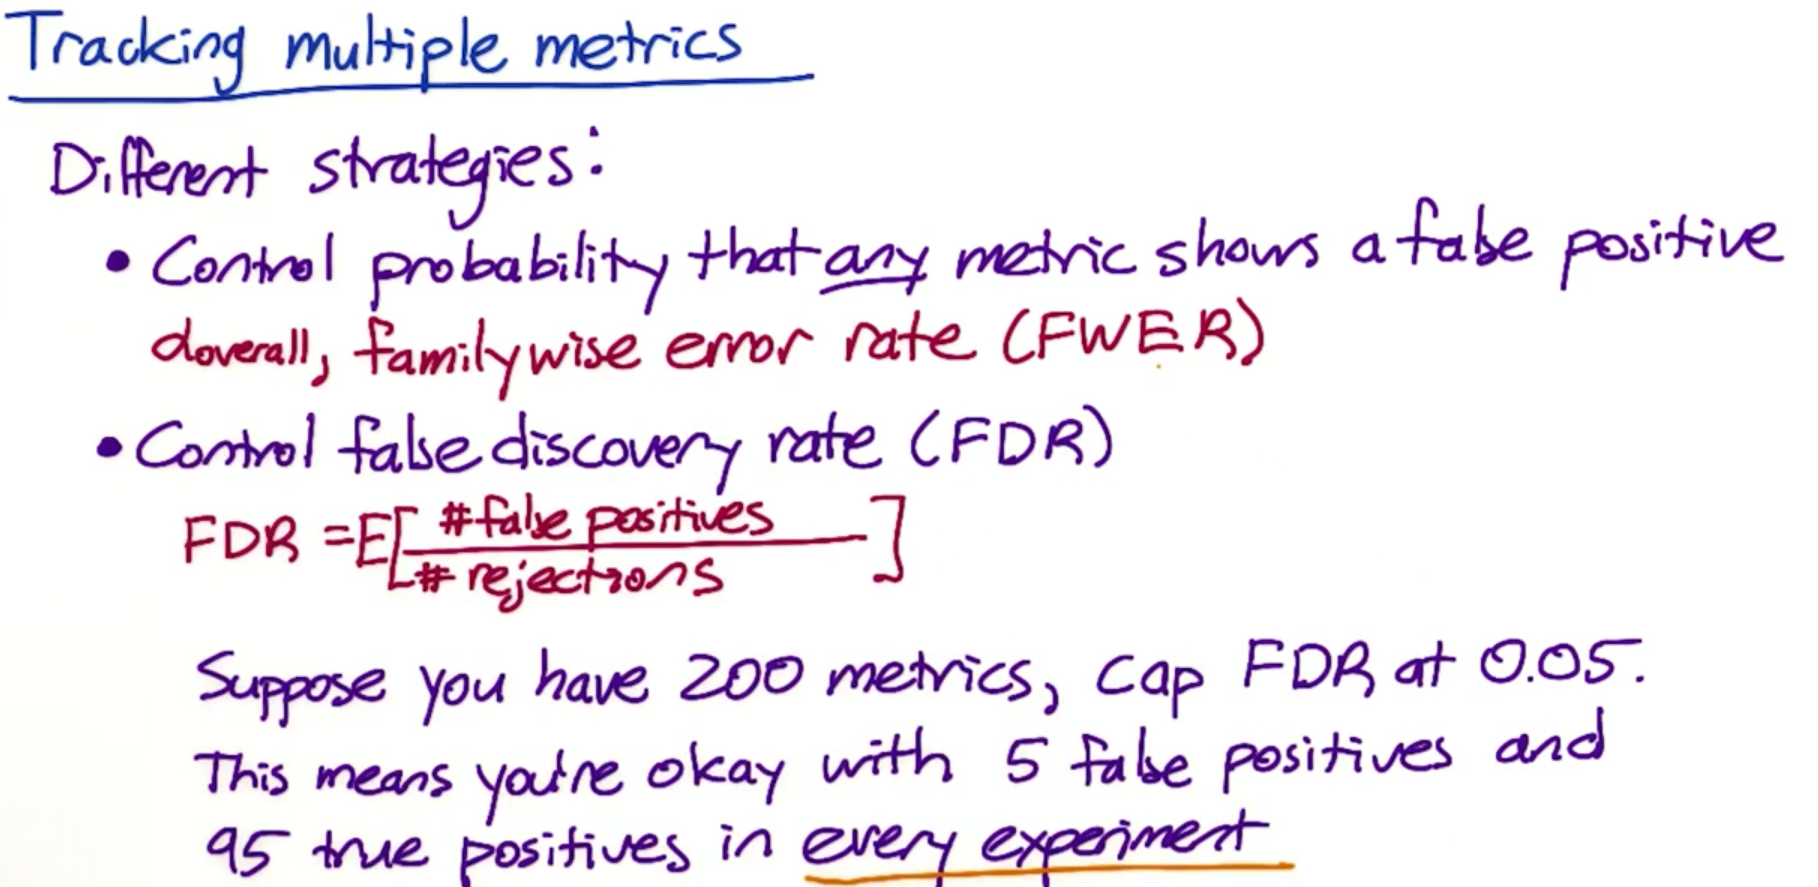 Tracking multiple metrics
Different strategies:
• Control probability that any metric shows a false positive
αoverall, familywise error rate (FWER)
• Control false discovery rate (FDR)
FDR = E[ # false positives
# rejections ]
Suppose you have 200 metrics, cap FDR at 0.05.
This means you're okay with 5 false positives and
95 true positives in every experiment